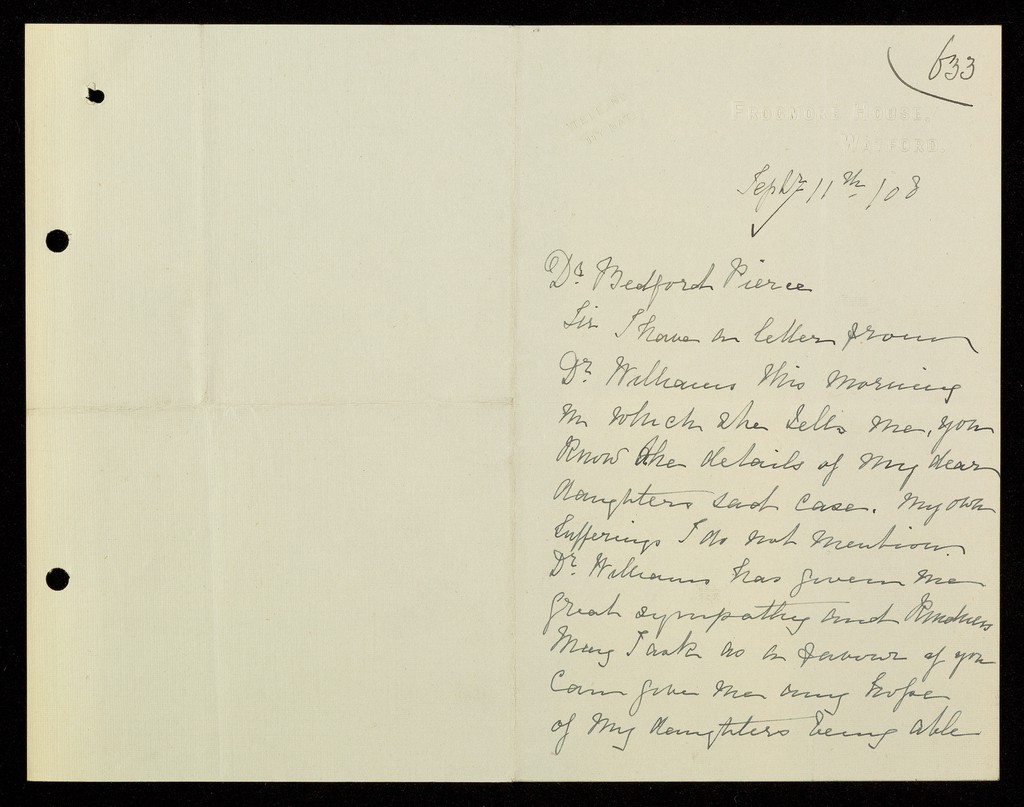 633
FROGMORE HOUSE,
WATFORD.
Sept 11th / 08
Dr. Bedford Pierce
Sir I have a letter from
Dr. Williams this morning
in which she tells me, you
know the details of my dear
daughters sad case. My own
sufferings I do not mention.
Dr. Williams has given me
great sympathy and kindness
May I ask as a favour if you
can give me any hope
of my daughters being able